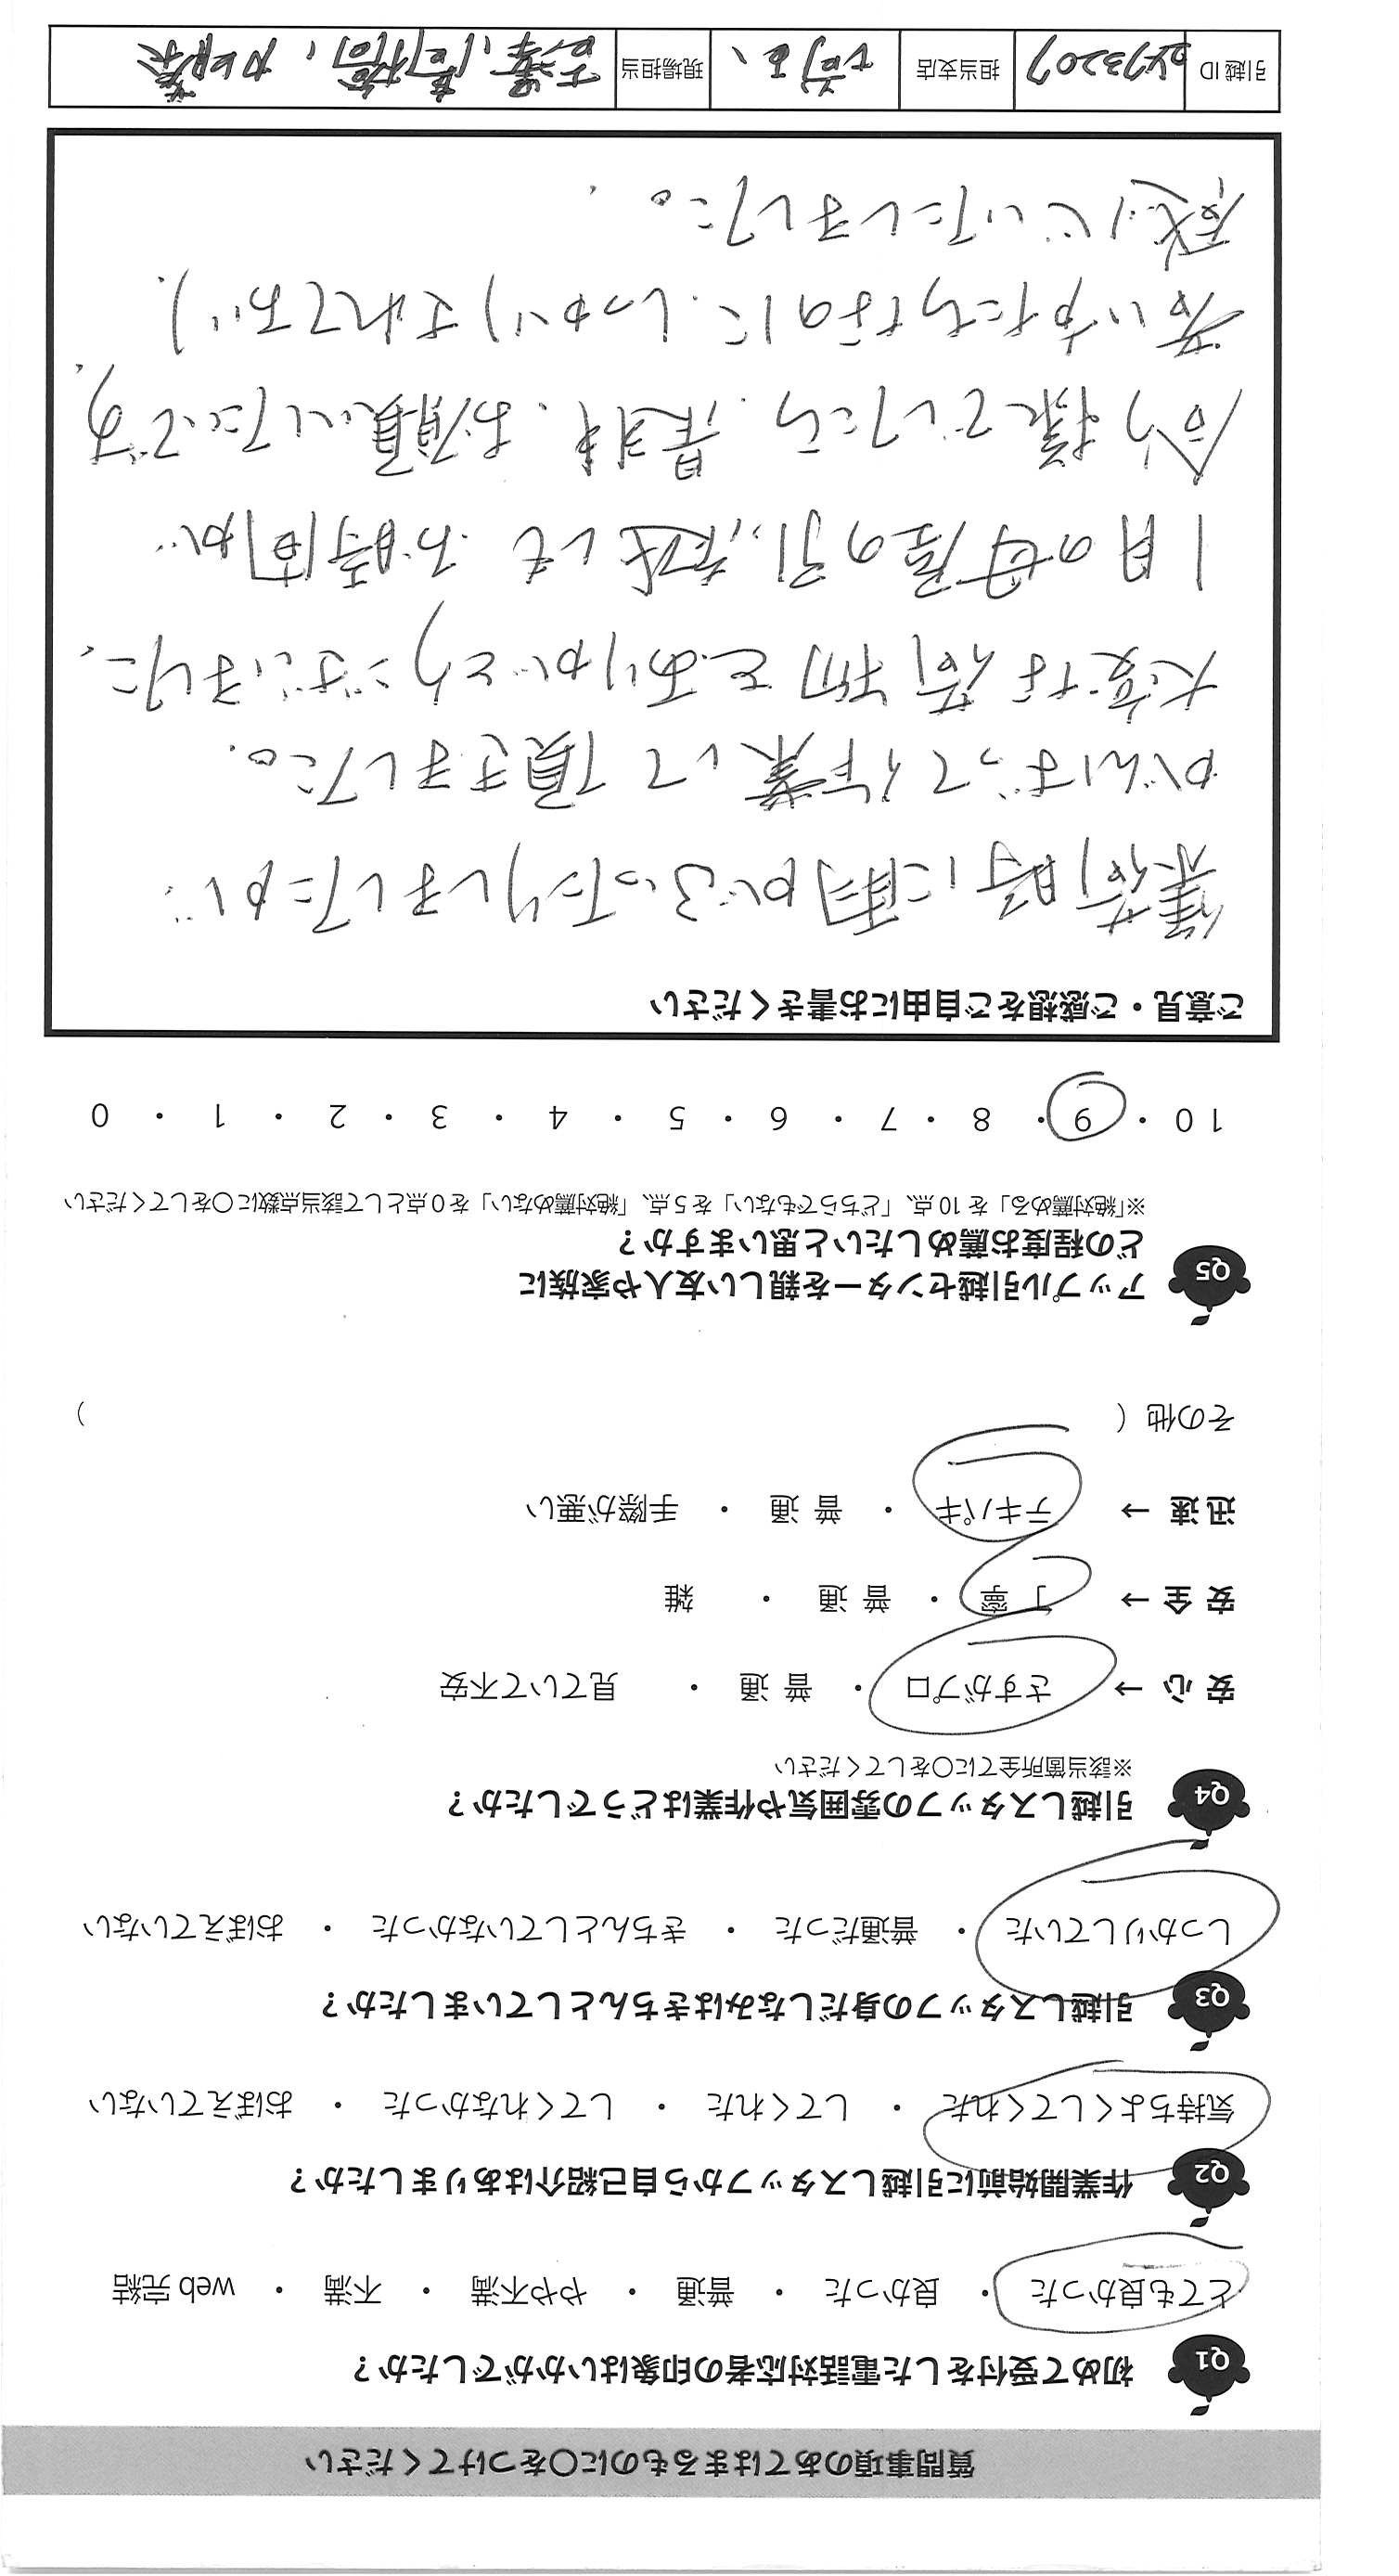 質問事項のあてはまるものに〇をつけてください
Q1 初めて受付をした電話対応者の印象はいかがでしたか？
とても良かった ・ 良かった ・ 普通 ・ やや不満 ・ 不満 ・ web 完結
Q2 作業開始前に引越しスタッフから自己紹介はありましたか？
気持ちよくしてくれた ・ してくれた ・ してくれなかった ・ おぼえていない
Q3 引越しスタッフの身だしなみはきちんとしていましたか？
しっかりしていた ・ 普通だった ・ きちんとしていなかった ・ おぼえていない
Q4 引越しスタッフの雰囲気や作業はどうでしたか？
※該当箇所全てに〇をしてください
安 心 → さすがプロ ・ 普 通 ・ 見ていて不安
安 全 → 丁 寧 ・ 普 通 ・ 雑
迅 速 → テキパキ ・ 普 通 ・ 手際が悪い
その他（ ）
Q5 アップル引越センターを親しい友人や家族に
どの程度お薦めしたいと思いますか？
※「絶対薦める」を 10 点、「どちらでもない」を 5 点、「絶対薦めない」を 0 点として該当点数に〇をしてください
10 ・ 9 ・ 8 ・ 7 ・ 6 ・ 5 ・ 4 ・ 3 ・ 2 ・ 1 ・ 0
ご意見・ご感想をご自由にお書きください
集荷時に雨がふったりしましたが
がんばって作業して頂きました。
大変な荷物をありがとうございました、
1月の母屋の引っ越しもお時間が
合う様でしたら是非、お願いしたいです。
若いかたたちなのに、しっかりされており、
感心いたしました。
引越 ID 担当支店 現場担当 古澤、高橋、